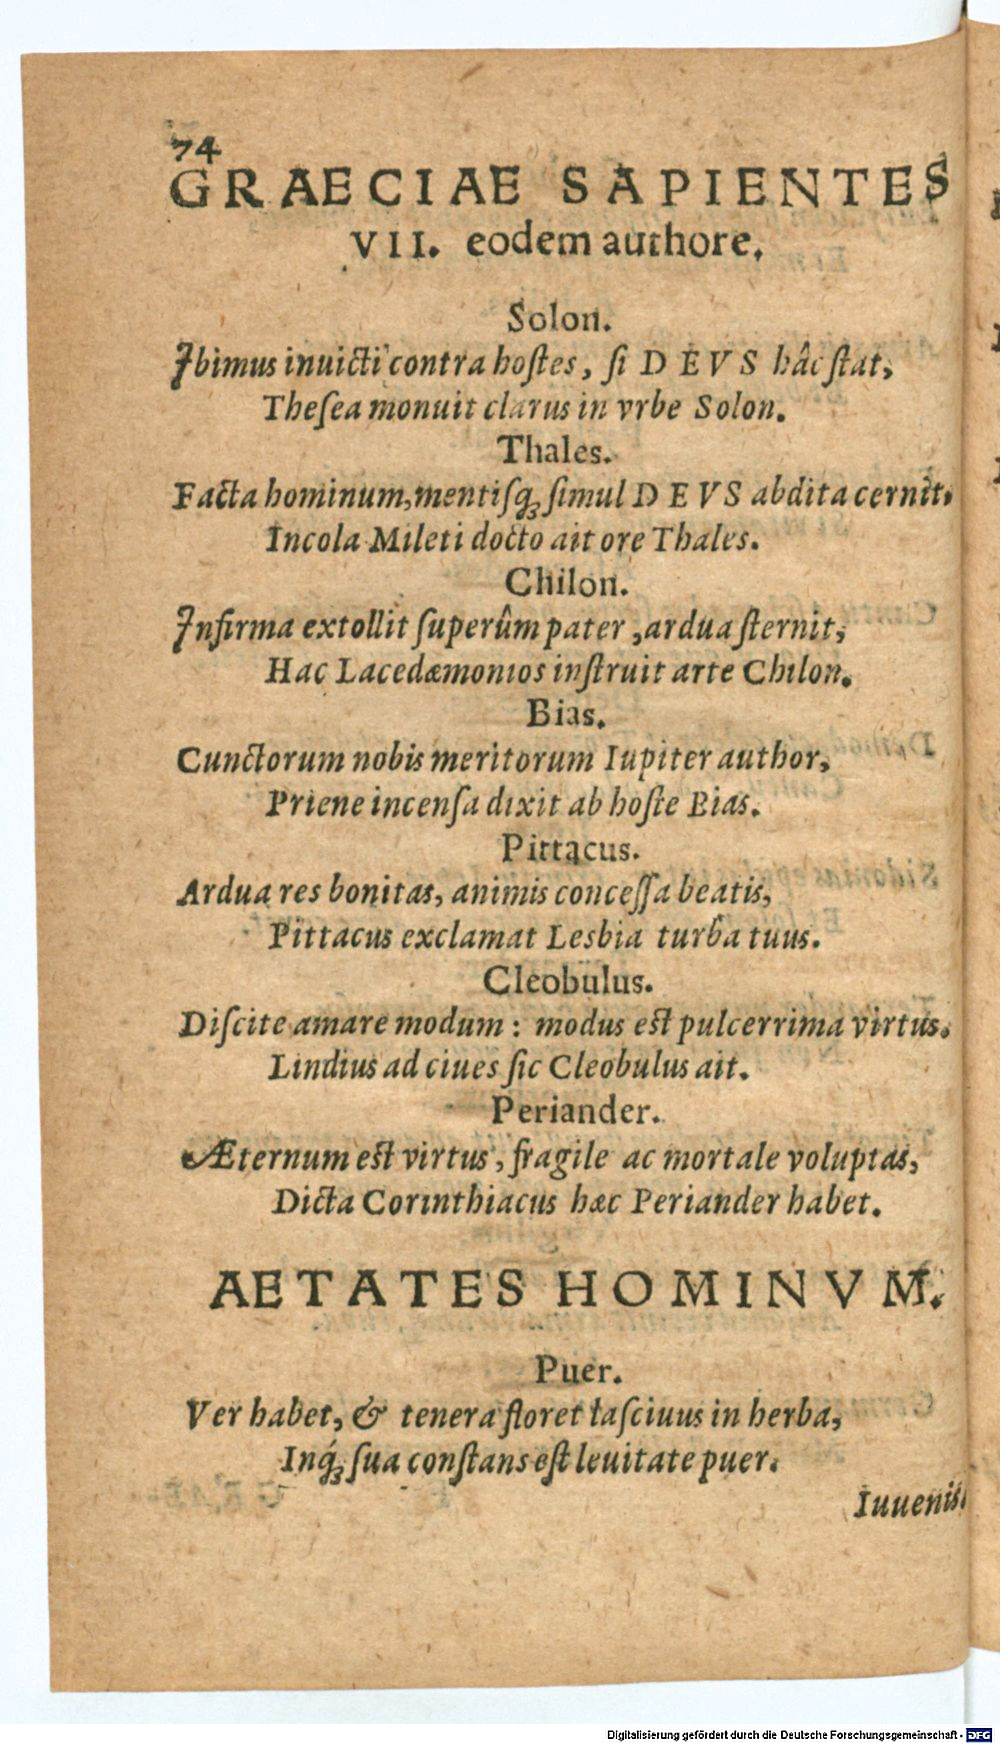 74
GRAECIAE SAPIENTES
VII. eodem authore.
Solon.
Ibimus inuicti contra hostes, si DEVS hâc stat,
Thesea monuit clarus in vrbe Solon.
Thales.
Facta hominum, mentisq; simul DEVS abdita cernit.
Incola Mileti docto ait ore Thales.
Chilon.
Infirma extollit superûm pater, ardua sternit,
Hac Lacedæmonios instruit arte Chilon.
Bias.
Cunctorum nobis meritorum Iupiter author,
Priene incensa dixit ab hoste Bias.
Pittacus.
Ardua res bonitas, animis concessa beatis,
Pittacus exclamat Lesbia turba tuus.
Cleobulus.
Discite amare modum: modus est pulcerrima virtus.
Lindius ad ciues sic Cleobulus ait.
Periander.
Æternum est virtus, fragile ac mortale voluptas,
Dicta Corinthiacus hæc Periander habet.
AETATES HOMINVM.
Puer.
Ver habet, & tenera floret lasciuus in herba,
Inq́; sua constans est leuitate puer.
Iuuenis.
Digitalisierung gefördert durch die Deutsche Forschungsgemeinschaft - DFG